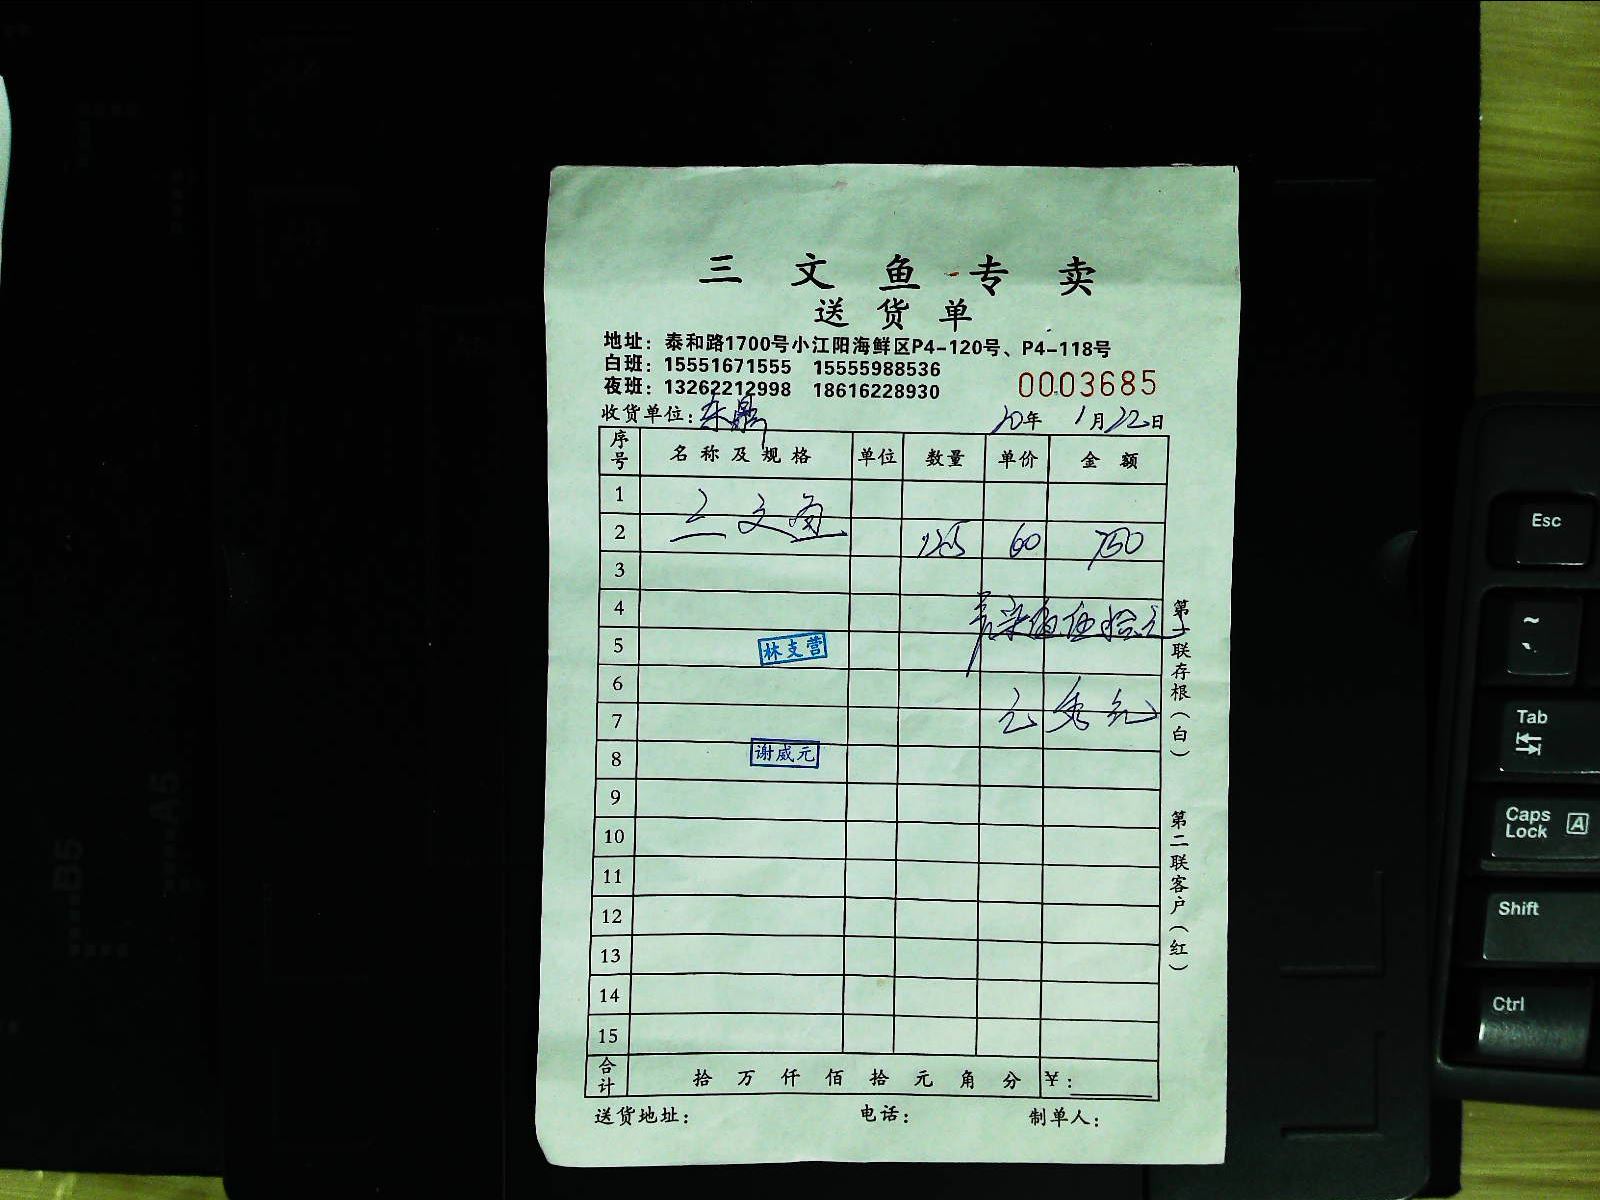 三文鱼专卖
送货单
地址：泰和路1700号小江阳海鲜区P4-120号、P4-118号
白班：15551671555 15555988536
夜班：13262212998 18616228930
0003685
收货单位：东鼎 20年 1月22日
序号 名称及规格 单位 数量 单价 金额
1
三文鱼
2 12.5 60 750
3
4 柒佰伍拾元
5 林支营
6
7
8 谢威元
9
10
11
12
13
14
15
合计 拾 万 仟 佰 拾 元 角 分 ¥：
送货地址： 电话： 制单人：
第一联存根（白）
第二联客户（红）
Esc
~
Tab
Caps Lock A
Shift
Ctrl
B5
A5